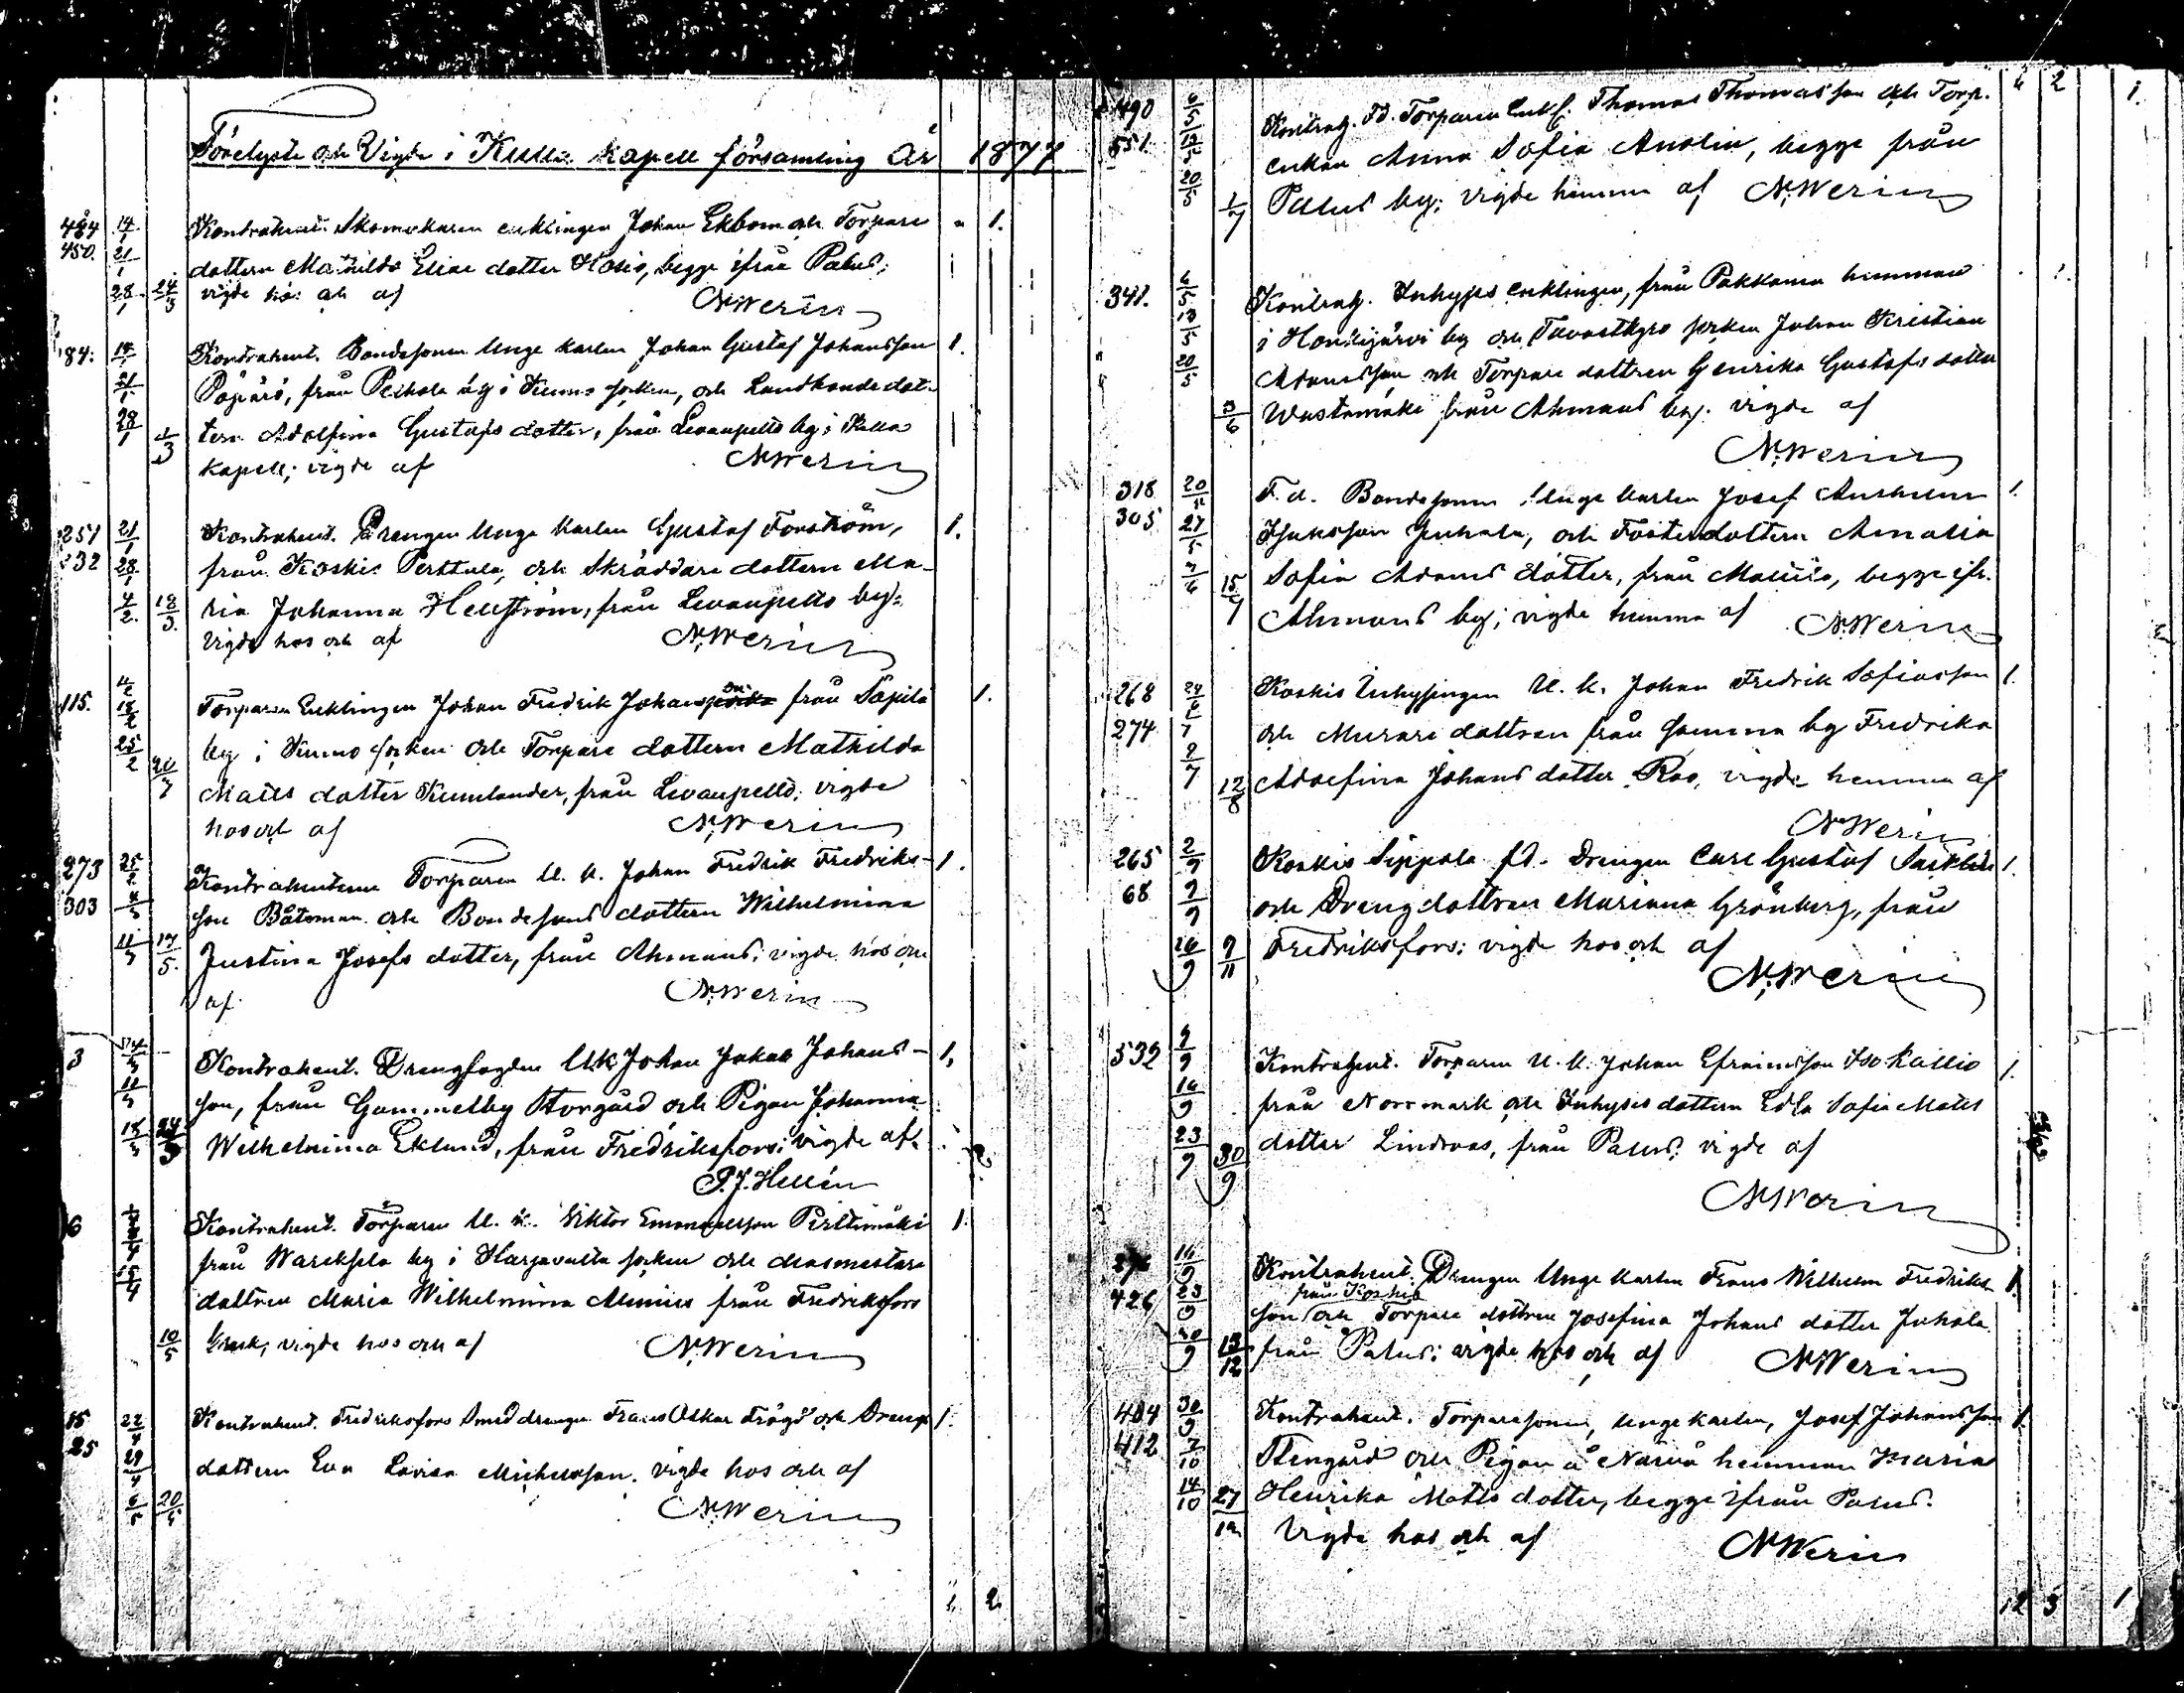 Förelyste och Vigde i Kulla kapell församling År 1877
484 14/1 Kontrahent. Skomakaren enklingen Johan Ekbom och Torpare 1.
450. 21/1 dottern Mathilda Elias dotter Hosis, begge ifrån Palus;
28/1 24/3 vigde hos och af NWerin
84. 14/1 Kontrahent. Bondesonen Unge karlen Johan Gustaf Johansson 1.
21/1 från Peihola by i Kumo socken, och Landbonde dot-
28/1 tern Adolfina Gustafs dotter, från Levanpelto by i Kulla
kapell; vigde af NWerin
251 21/1 Kontrahent. Drengen Unge karlen Gustaf Forström, 1.
232 28/1 från Koskis Perttula, och Skräddare dottern Ma-
4/2 18/3 ria Johanna Hellström, från Levanpelto by;
Vigde hos och af N.Werin
115. Torparen Enklingen Johan Fredrik Johansson från Säpilä 1.
18/2 by i Kumo socken och Torpare dottern Mathilda
25/2 Matts dotter Kumlander, från Levanpelto; vigde
hos och af N.Werin
273 25/2 Kontrahenterne Torparen U. K. Johan Fredrik Fredriks- 1.
303 4/3 son Båtsman och Bondesons dottern Wilhelmina
11/3 17/5. Justina Josefs dotter, från Ahmaus; vigde hos och
af N.Werin
3 4/3 Kontrahent. Drengfogden UK Johan Jakob Johans- 1,
11/3 son, från Gammelby Storgård och Pigan Johanna
18/3 Wilhelmina Eklund, från Fredriksfors; vigde af
P.J.Hellén
6 Kontrahent. Torparen U. K. Viktor Emanuelsson Perttimäki 1.
från Wareksela by i Harjavalta socken och masmestare
dottren Maria Wilhelmina från Fredriksfors
10/5 bruk, vigde hos och af N.Werin
15 22/4 Kontrahent. Fredriksfors Smeddrengen Frans Oskar Frögd och Dreng 1.
25 29/4 dottern Eva Lovisa Michelsson. vigde hos och af
6/5 20/5 N.Werin
2
490 6/5 Kontrah. Fd. Torparen Enkl. Thomas Thomasson och Torp. 6 2 1.
551. 13/5 enkan Anna Sofia Anolin, begge från
20/5 1/7 Palus by; vigde hemma af N.Werin
341. 6/5 Kontrah. Inhyses enklingen, från Pakkama hemman
13/5 i Honkijärvi by och Tavastkyro socken Johan Kristian
20/5 Adamsson och Torpare dottren Henrika Gustafs dotter
3/6 Wastamäki från Ahmaus by. vigde af
N.Werin
318 20/5 F.d. Bondesonen Unge karlen Josef Anshelm 1.
305 27/5 Isaksson Juhala, och Fosterdottern Amalia
3/6 15/7 Sofia Adams dotter, från Mattila, begge ifr.
Ahmaus by; vigde hemma af N.Werin
268 24/6 Koskis Inhysingen U. K. Johan Fredrik Sofiasson 1.
274 1/7 och Murare dottren från samma by Fredrika
8/7 12/8 Adolfina Johans dotter Roo, vigde hemma af
N.Werin
265 2/9 Koskis Seppala fd. Drengen Carl Gustaf 1.
68 9/9 och Drengdottren Marianna Grönberg, från
16/9 9/11 Fredriksfors; vigde hos och af
N.Werin
539 9/9 Kontrahent. Torparen U. K. Johan Efraimsson Iso Kallio 1.
16/9 från Norrmark och Inhyses dottern Edla Sofia Matts
23/9 30/9 dotter Lindroos, från Palus; vigde af
N.Werin
276 16/9 Kontrahent. Drengen Unge karlen Frans Wilhelm Fredriks- 1
från Koskis
426 23/9 son och Torpare dottren Josefina Johans dotter Juhola
30/9 13/12 från Palus; vigde hos och af N.Werin
404 30/9 Kontrahent. Torparesonen, Unge karlen, Josef Johansson 1.
412 7/10 Stengård och Pigan å Närvä hemman Maria
14/10 27/12 Henrika Matts dotter, begge ifrån Palus.
Vigde hos och af NWerin
12 3 1